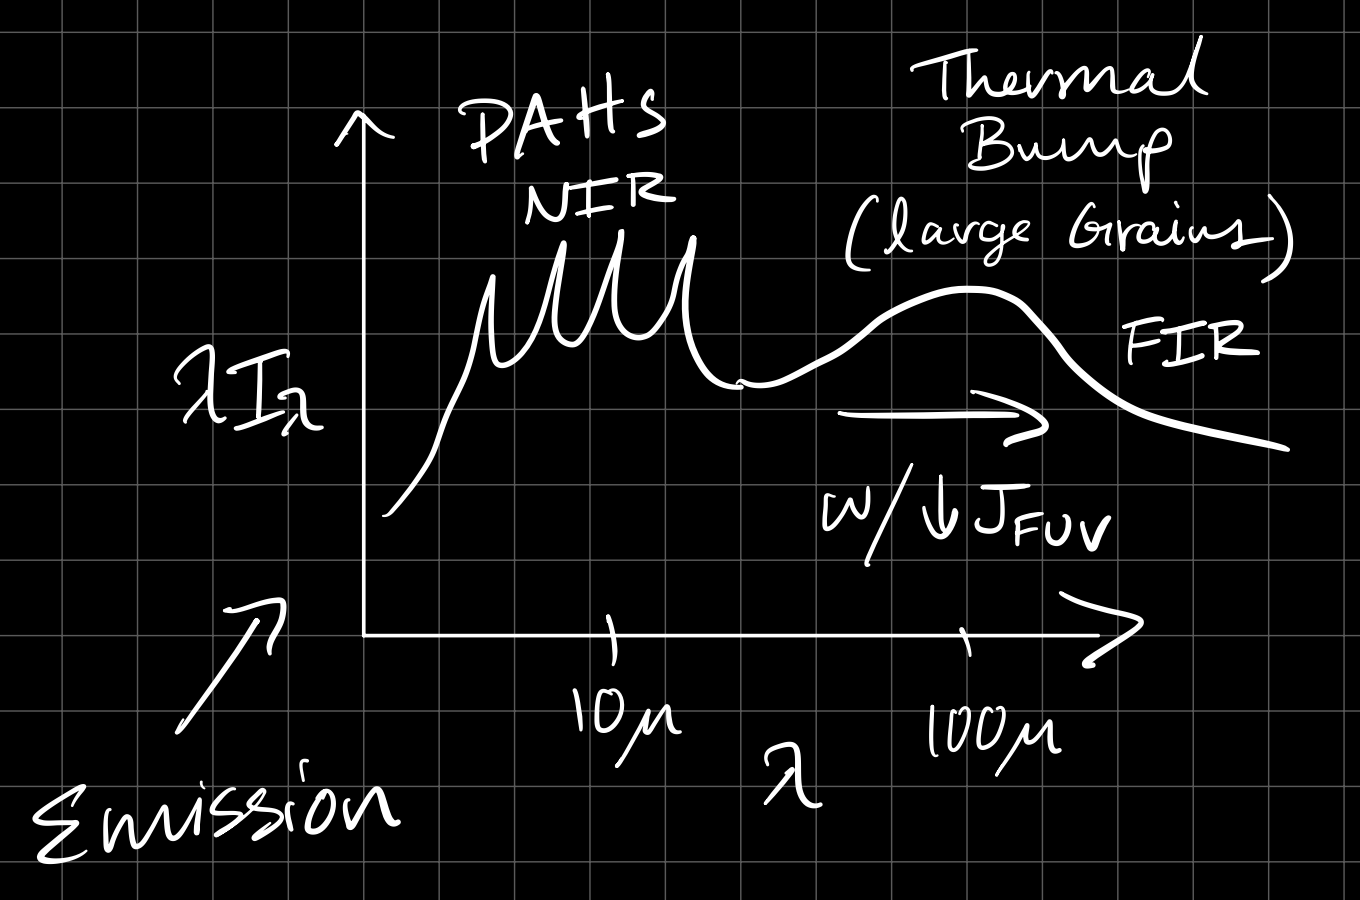 PAHs
NIR
Thermal
Bump
(large Grains)
FIR
λI_λ
w/↓J_FUV
10μ
100μ
λ
Emission